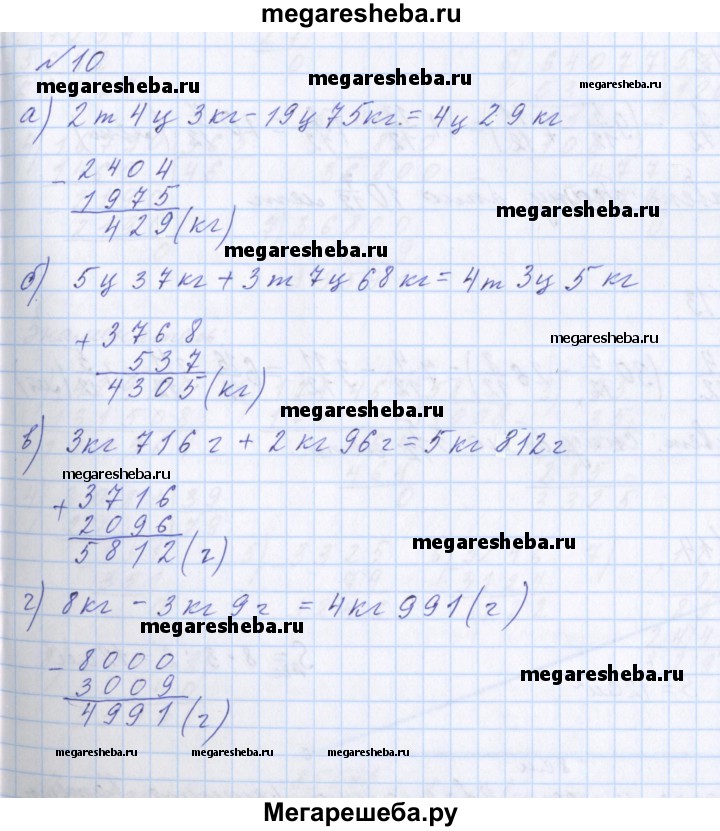 megaresheba.ru
№10
megaresheba.ru
megaresheba.ru
а) 2т 4ц 3кг - 19ц 75кг. = 4ц 29кг
- 2404
1975
429(кг)
megaresheba.ru
megaresheba.ru
б) 5ц 37кг + 3т 7ц 68кг = 4т 3ц 5кг
+ 3768
537
4305(кг)
megaresheba.ru
megaresheba.ru
в) 3кг 716г + 2кг 96г = 5кг 812г
megaresheba.ru
+ 3716
2096
5812(г)
megaresheba.ru
г) 8кг - 3кг 9г = 4кг 991(г)
megaresheba.ru
- 8000
3009
4991(г)
megaresheba.ru
megaresheba.ru megaresheba.ru megaresheba.ru megaresheba.ru
Мегарешеба.ру